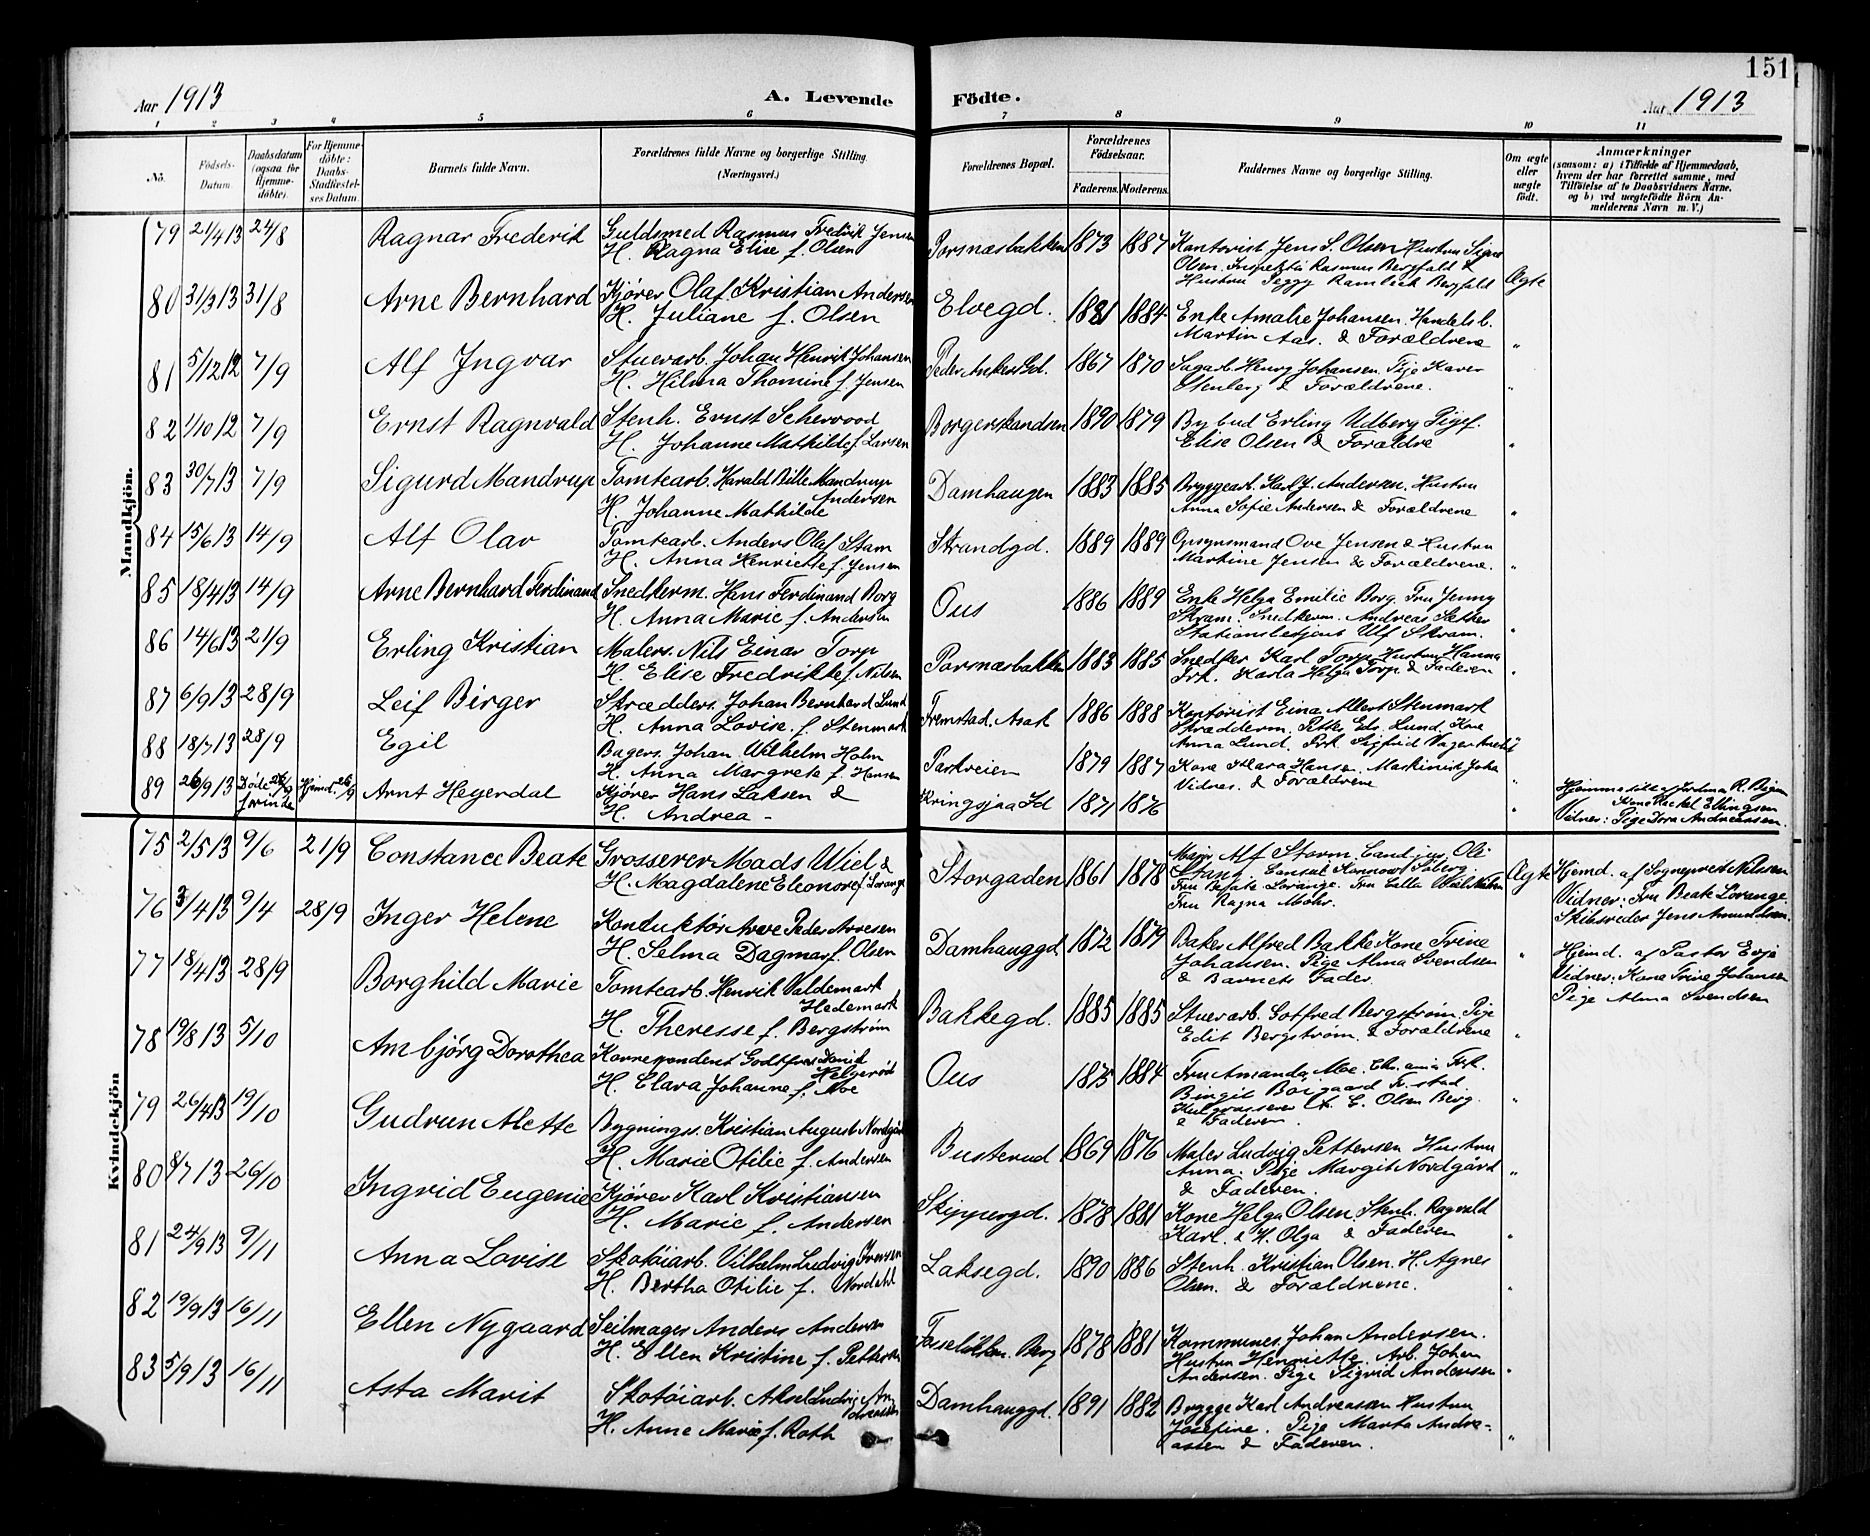 151
Aar 1913
A. Levende
Födte.
Aar 1913
1 2 3 4 5 6 7 8 9 10 11
No.
Födsels-Datum.
Daabsdatum (ogsaa for Hjemmedöbte).
For Hjemmedöbte: Daabs-Stadfæstelses Datum.
Barnets fulde Navn.
Forældrenes fulde Navne og borgerlige Stilling. (Næringsvei.)
Forældrenes Bopæl.
Forældrenes Födselsaar.
Faderens. Moderens.
Faddernes Navne og borgerlige Stilling.
Om ægte eller uægte födt.
Anmærkninger
(saasom: a) i Tilfælde af Hjemmedaab, hvem der har forrettet samme, med Tilföielse af to Daabsvidners Navne, og b) ved uægtefödte Börn Anmelderens Navn m. V.)
Mandkjön.
79 21/4 13 24/8 Ragnar Frederik Guldsmed Rasmus Fredrik Jensen
H. Ragna Elise f. Olsen Porsnæsbakken 1873 1887 Kontorist Jens S. Olsen Hustru Signe
Olsen. Rasmus Bergfald &
Hustru Peggy Bergfald Ægte
80 31/3 13 31/8 Arne Bernhard Kjörer Olaf Kristian Andersen
H. Juliane f. Olsen Elvegd. 1881 1884 Enke Amalie Johansen. Handelsb.
Martin Aas. & Forældrene "
81 5/12 12 7/9 Alf Ingvar Stuerarb. Johan Henrik Johansen
H. Hilma Thomine f. Jensen Peder Ankers Gd. 1867 1870 Sagarb. Henry Johansen. Pije Karen
Stenberg & Forældrene. "
82 1/10 12 7/9 Ernst Ragnvald Stenh. Ernst Scherwood
H. Johanne Mathilde f. Larsen Borgerskandsen 1890 1879 Bybud Erling Udberg Pige
Elise Olsen & Forældre "
83 30/7 13 7/9 Sigurd Mandrup Tomtearb. Harald Bille Mandrup
Andersen
H. Johanne Mathilde Damhaugen 1883 1885 Bryggearb. Karl J. Andersen. Hustru
Anna Sofie Andersen & Forældrene "
84 15/6 13 14/9 Alf Olav Tomtearb. Anders Olaf Stam
H. Anna Henriette f. Jensen Strandgd. 1889 1889 Opsynsmand Ove Jensen & Hustru
Martine Jensen & Forældrene. "
85 18/4 13 14/9 Arne Bernhard Ferdinand Snedkerm. Hans Ferdinand Borg
H. Anna Marie f. Andersen Ous 1886 1889 Enke Helga Emilie Borg. Fru Jenny
Skram. Snedkerm. Andreas Sæther
Stationsbetjent Ulf Skram. "
86 14/6 13 21/9 Erling Kristian Malers. Nils Einar Torp
H. Elise Fredrikke f. Nilsen Porsnæsbakken 1883 1885 Snedker Karl Torp Hustru Hanna
Frk. Karla Helga Torp & Faderen "
87 6/9 13 28/9 Leif Birger Skrædders. Johan Bernhard Lund
H. Anna Lovise. f. Stenmark Fremstad. Asak 1886 1888 Kontorist Einar Albert Stenmark
Skrædderm. Petter Edv. Lund. Kone
Anna Lund. Frk. Sigfrid
88 18/7 13 28/9 Egil Bagers. Johan Wilhelm Holm
H. Anna Margrete f. Hansen Parkveien 1879 1887 Kone Klara Hansen. Maskinist Joha
Vidnes. & Forældrene "
89 26/9 13 Döde 26/9 forinde Hjemd. 26/9 Arnt Heyerdal Kjörer Hans Laksen &
H. Andrea - Kringsjaa Gd 1871 1876 " R. Bigum
Kone Rakel Ellingsen
Vidner: Pige Dora Andreassen.
Kvindekjön
75 2/5 13 9/6 21/9 Constance Beate Grosserer Mads Wiel &
H. Magdalene Eleonore f. Lorange Storgaden 1861 1878 Major Alf Storm. Cand. jur. Ole
Stang. Konsul Søberg
Fru Beate Lorange. Fru
Fru Ragna Mohr. Ægte Hjemd. af Sognepræst Nilssen
Vidner: Fru Beate Lorange
Skibsreder Jens Amundsen.
76 3/4 13 9/4 28/9 Inger Helene Konduktør Arve Peder Arvesen
H. Selma Dagmar f. Olsen Damhauggd. 1872 1879 Baker Alfred Bakke Kone Trine
Johansen. Pige Alma Svendsen
& Barnets Fader. " Hjemd. af Pastor Evje
Vidner: Kone Trine Johansen
Pige Alma Svendsen
77 18/4 13 28/9 Borghild Marie Tomtearb. Henrik Valdemark
Hedemark
H. Theresse f. Bergström Bakkegd. 1885 1885 Stuerarb. Gotfred Bergström. Pije
Edit Bergström. & Forældrene "
78 19/8 13 5/10 Ambjörg Dorothea Korrespondent Godtfred David
Helgerød
H. Clara Johanne f. Moe Ous 1875 1884 Fru Amanda Moe. Chr.ania Frk.
Birgit Borgaard Fr.stad.
A. E. Olsen Berg.
& Faderen. "
79 26/4 13 19/10 Gudrun Alette Bygnings. Kristian August Nordgård
H. Marie Otilie f. Andersen Busterud 1869 1876 Maler Ludvig Pettersen Hustru
Anna. Pige Margit Nordgård
& Faderen. "
80 8/7 13 26/10 Ingrid Eugenie Kjörer Karl Kristiansen
H. Marie f. Andersen Skippergd. 1878 1881 Kone Helga Olsen. Stenh. Ragvald
Karl. & H. Olga & Faderen "
81 24/9 13 9/11 Anna Lovise Skotöiarb. Vilhelm Ludvig Iversen
H. Bertha Otilie f. Nordahl Laksegd. 1890 1886 Stenh. Kristian Olsen. H. Agnes
Olsen. & Forældrene. "
82 19/9 13 16/11 Ellen Nygaard Seilmager Anders Andersen
H. Ellen Kristine f. Pettersen Berg 1878 1881 Kommunes. Johan Andersen.
Hustru Henriette. Arb. Johan
Andersen. Pige Sigrid Andersen "
83 5/9 13 16/11 Asta Marit Skotöiarb. Aksel Ludvig An
dreassen
H. Anne Marie f. Roth Damhauggd. 1891 1882 Brygge Karl Andreassen Hustru
Josefine. Pige Marta Andre-
assen & Faderen. "